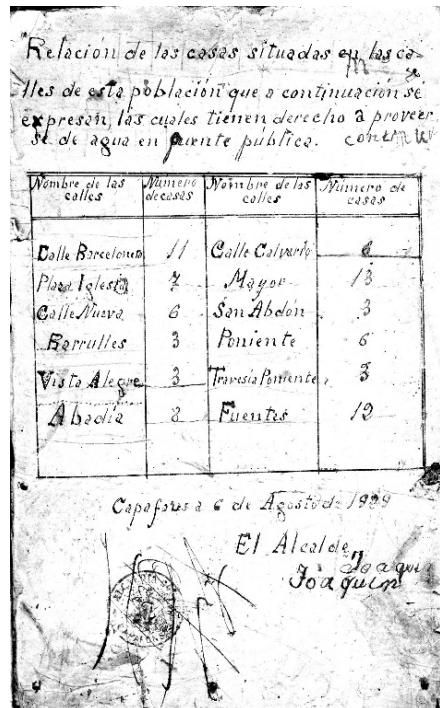 Relación de las casas situadas en las ca-
lles de esta población que a continuación se
expresan, las cuales tienen derecho a proveer
se de agua en fuente pública.
Nombre de las calles Numero de casas Nombre de las calles Número de casas
Calle Barcelonesa 11 Calle Calvario
Plaza Iglesia 7 Mayor 13
Calle Nueva 6 San Abdón 3
Barrulles 3 Poniente 6
Vista Alegre 3 Travesía Poniente 3
Abadía 8 Fuentes 12
Capafons a 6 de Agosto de 1929
El Alcalde,
Joaqui
Joaquin